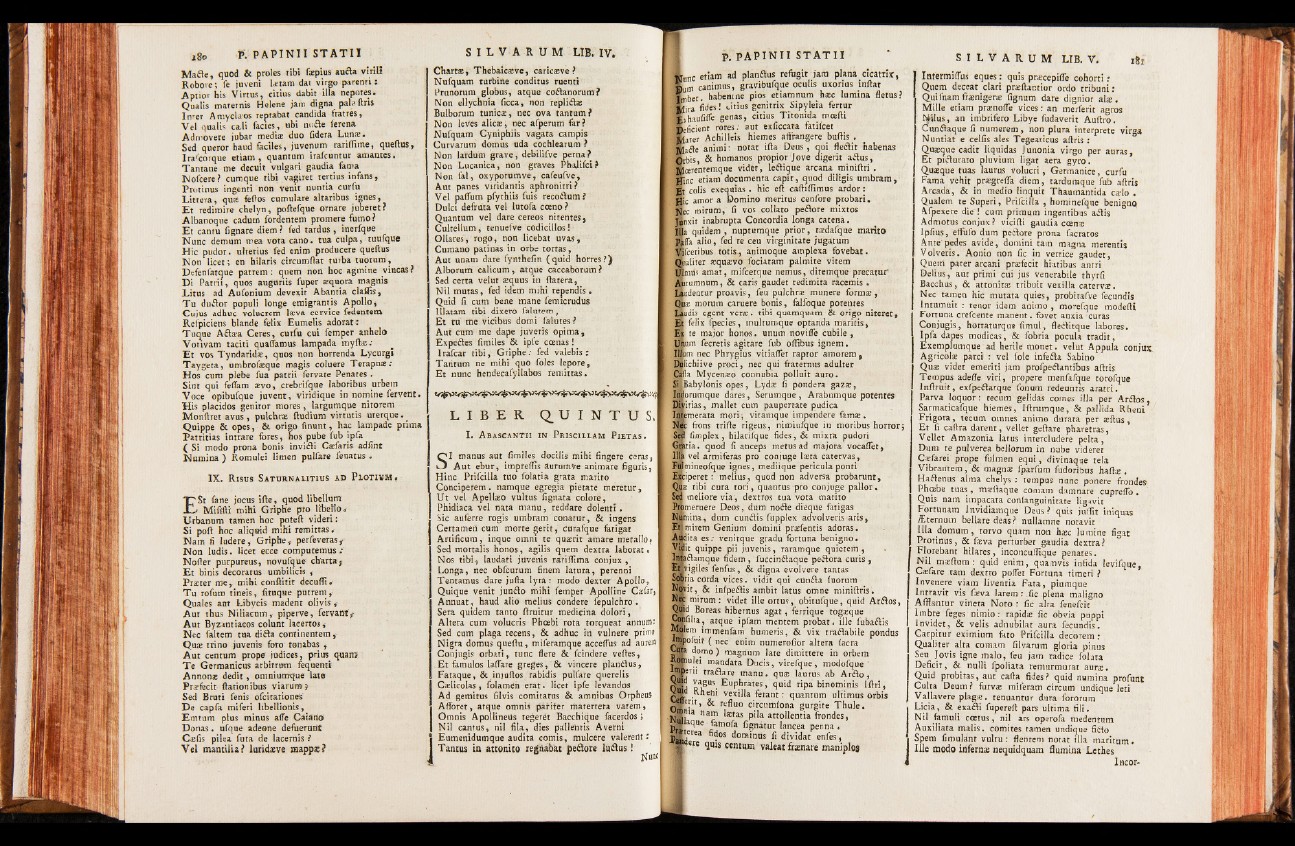 180 P. PAPINII STATII
Macte, quod & proles tibi sæpius aucta virili
Robore; se juveni lætam dat virgo parenti:
Aptior his Virtus, citius dabit illa nepotes.
Qualis maternis Helene jam digna palæstris
Inter Amyclæos reptabat candida fratres,
Vel qualis cæli facies, ubi nocte serena
Admovere jubar mediæ duo sidera Lunæ.
Sed queror haud faciles, juvenum rarissime, questus,
Irascorque etiam, quantum irascuntur amantes.
Tantane me decuit vulgari gaudia fama
Noscere? cumque tibi vagiret tertius infans,
Protinus ingenti non venit nuntia cursu
Littera, quæ festos cumulare altaribus ignes,
Et redimire chelyn, postesque ornare juberet?
Albanoque cadum sordentem promere fumo?
Et cantu signare diem? sed tardus, inersque
Nunc demum mea vota cano. tua culpa, tuusque
Hic pudor. ulterius sed enim producere questus
Non licet; en hilaris circumstat turba tuorum,
Defensatque patrem: quem non hoc agmine vincas?
Di Patrii, quos auguriis super æquora magnis
Litus ad Ausonium devexit Abantia classis,
Tu ductor populi longe emigrantis Apollo,
Cujus adhuc volucrem læva cervice sedentem
Respiciens blande felix Eumelis adorat:
Tuque Actæa Ceres, cursu cui semper anhelo
Votivam taciti quassamus lampada mystæ:
Et vos Tyndaridæ, quos non horrenda Lycurgi
Taygeta, umbrosæque magis coluere Terapnæ:
Hos cum plebe sua patrii servate Penates.
Sint qui fessam ævo, crebrisque laboribus urbem
Voce opibusque juvent, viridique in nomine servent.
His placidos genitor mores, largumque nitorem
Monstret avus, pulchræ studium virtutis uterque.
Quippe & opes, & origo sinunt, hac lampade prima
Patritias intrare fores, hos pube sub ipsa
( Si modo prona bonis invicti Cæsaris adsint
Numina ) Romulei limen pulsare senatus.
IX. Risus Saturnalitius ad Plotium.
ESt sane jocus iste, quod libellum
Misisti mihi Griphe pro libello.
Urbanum tamen hoc potest videri:
Si post hoc aliquid mihi remittas.
Nam si ludere, Griphe, perseveras,
Non ludis. licet ecce computemus:
Noster purpureus, novusque charta,
Et binis decoratus umbilicis,
Præter me, mihi constitit decussi.
Tu rosum tineis, situque putrem,
Quales aut Libycis madent olivis,
Aut thus Niliacum, piperve, servant,
Aut Byzantiacos colunt lacertos,
Nec saltem tua dicta continentem,
Quæ trino juvenis foro tonabas,
Aut centum prope judices, prius quam
Te Germanicus arbitrum sequenti
Annonæ dedit, omniumque late
Præfecit stationibus viarum;
Sed Bruti senis oscitationes
De capsa miseri libellionis,
Emtum plus minus asse Caiano
Donas. usque adeone defuerunt
Cæsis pilea suta de lacernis?
Vel mantilia? luridæve mappæ?
SILVARUM LIB. IV.
Chartæ, Thebaicæve, caricæve?
Nusquam turbine conditus ruenti
Prunorum globus, atque coctanorum?
Non ellychnia sicca, non replictæ
Bulborum tunicæ, nec ova tantum?
Non leves alicæ, nec asperum far?
Nusquam Cyniphiis vagata campis
Curvarum domus uda cochlearum?
Non lardum grave, debilisve perna?
Non Lucanica, non graves Phalisci?
Non sal, oxyporumve, caseusve,
Aut panes viridantis aphronitri?
Vel passum psythiis suis recoctum?
Dulci defruta vel lutosa cœno?
Quantum vel dare cereos nitentes,
Cultellum, tenuesve codicillos!
Ollares, rogo, non licebat uvas,
Cumano patinas in orbe tortas,
Aut unam dare synthesin (quid horres?)
Alborum calicum, atque caccaborum?
Sed certa velut æquus in statera,
Nil mutas, sed idem mihi rependis.
Quid si cum bene mane semicrudus
Illatam tibi dixero salutem,
Et tu me vicibus domi salutes?
Aut cum me dape juveris opima,
Expectes similes & ipse cœnas!
Irascar tibi, Griphe: sed valebis:
Tantum ne mihi quo soles lepore,
Et nunc hendecasyllabos remittas.
LIBER QUINTUS,
I. Abascantii in Priscillam Pietas.
SI manus aut similes docilis mihi fingere ceras,
Aut ebur, impressis aurumve animare figuris,
Hinc Priscilla tuo solatia grata marito
Conciperem. namque egregia pietate meretur,
Ut vel Apelleo vultus signata colore,
Phidiaca vel nata manu, reddare dolenti.
Sic auferre rogis umbram conatur, & ingens
Certamen cum morte gerit, curasque fatigat
Artificum, inque omni te quærit amare metallo,
Sed mortalis honos, agilis quem dextra laborat.
Nos tibi, laudati juvenis rarissima conjux,
Longa, nec obscurum finem latura, perenni
Tentamus dare justa lyra: modo dexter Apollo,
Quique venit juncto mihi semper Apolline Cæsar,
Annuat, haud alio melius condere sepulchro.
Sera quidem tanto struitur medicina dolori,
Altera cum volucris Phœbi rota torqueat annum:
Sed cum plaga recens, & adhuc in vulnere primo
Nigra domus questu, miseramque accessus ad aurem
Conjugis orbati, tunc flere & scindere vestes,
Et famulos lassare greges, & vincere planctus,
Fataque, & injustos rabidis pulsare querelis
Cælicolas, solamen erat. licet ipse levandos
Ad gemitus silvis comitatus & amnibus Orpheus
Afforet, atque omnis pariter matertera vatem,
Omnis Apollineus tegeret Bacchique sacerdos;
Nil cantus, nil fila, dies pallentis Averni
Eumenidumque audita comis, mulcere valerent:
Tantus in attonito regnabat pectore luctus!
Nunc
P. PAPINII STATII
Nunc etiam ad planctus refugit jam plana cicatrix,
Dum canimus, gravibusque oculis uxorius instat
Imber. habentne pios etiamnum hæc lumina fletus?
Mira fides! citius genitrix Sipyleia fertur
Exhausisse genas, citius Titonida mœsti
Deficient rores: aut exsiccata fatiscet
Mater Achilleis hiemes affrangere bustis.
Macte animi: notat ista Deus, qui flectit habenas
Orbis, & humanos propior Jove digerit actus,
Mœrentemque videt, lectique arcana ministri.
Hinc etiam documenta capit, quod diligis umbram,
Et colis exequias. hic est castissimus ardor:
Hic amor a Domino meritus censore probari.
Nec mirum, si vos collato pectore mixtos
Junxit inabrupta Concordia longa catena.
Illa quidem, nuptumque prior, tædasque marito
Passa alio, sed te ceu virginitate jugatum
Visceribus totis, animoque amplexa fovebat.
Qualiter æquævo sociatam palmite vitem
Ulmus amat, miscetque nemus, ditemque precatur
Autumnum, & caris gaudet redimita racemis.
Laudentur proavis, seu pulchræ munere formæ,
Quæ morum caruere bonis, falsoque potentes
Laudis egent veræ. tibi quamquam & origo niteret,
Et felix species, multumque optanda maritis,
Ex te major honos. unum novisse cubile,
Unum secretis agitare sub ossibus ignem.
Illum nec Phrygius vitiasset raptor amorem,
Dulichiive proci, nec qui fraternus adulter
Casta Mycenæo connubia polluit auro.
Si Babylonis opes, Lydæ si pondera gazæ,
Indorumque dares, Serumque, Arabumque potentes
Divitias, mallet cum paupertate pudica
Intemerata mori; vitamque impendere famæ.
Nec frons triste rigens, nimiusque in moribus horror;
Sed simplex, hilarisque fides, & mixta pudori
Gratia. quod si anceps metus ad majora vocasset,
Illa vel armiferas pro conjuge læta catervas,
Fulmineosque ignes, mediique pericula ponti
Exciperet: melius, quod non adversa probarunt,
Quæ tibi cura tori, quantus pro conjuge pallor.
Sed meliore via, dextros tua vota marito
Promeruere Deos, dum nocte dieque fatigas
Numina, dum cunctis supplex advolveris aris,
Et mitem Genium domini præsentis adoras.
Audita es: venitque gradu fortuna benigno.
Vidit quippe pii juvenis, raramque quietem,
Intactamque fidem, succinctaque pectora curis,
Et vigiles sensus, & digna evolvere tantas
Sobria corda vices. vidit qui cuncta suorum
Novit, & inspectis ambit latus omne ministris.
Nec mirum: videt ille ortus, obitusque, quid Arctos,
Quid Boreas hibernus agat, ferrique togæque
Consilia, atque ipsam mentem probat. ille subactis
Molem immensam humeris, & vix tractabile pondus
Imposuit ( nec enim numerosior altera sacra
Cura domo ) magnum late dimittere in orbem
Romulei mandata Ducis, viresque, modosque
Imperii tractare manu. quæ laurus ab Arcto,
Quid vagus Euphrates, quid ripa binominis Istri,
Quid Rheni vexilla ferant: quantum ultimus orbis
Cesserit, & refluo circumsona gurgite Thule.
Omnia nam lætas pila attollentia frondes,
Nullaque famosa signatur lancea penna.
Præterea fidos dominus si dividat enses,
Pandere quis centum valeat frænare maniplos
SILVARUM LIB. V. 181
Intermissus eques: quis præcepisse cohorti:
Quem deceat clari præstantior ordo tribuni:
Quisnam frænigeræ signum dare dignior alæ.
Mille etiam prænosse vices: an merserit agros
Nilus, an imbrifero Libye sudaverit Austro.
Cunctaque si numerem, non plura interprete virga
Nuntiat e celsis ales Tegeaticus astris:
Quæque cadit liquidas Junonia virgo per auras,
Et picturato pluvium ligat aera gyro.
Quæque tuas laurus volucri, Germanice, cursu
Fama vehit prægressa diem, tardumque sub astris
Arcada, & in medio linquit Thaumantida cælo.
Qualem te Superi, Priscilla, hominesque benigno
Aspexere die! cum primum ingentibus actis
Admotus conjux? vicisti gaudia cœnæ
Ipsius, effuso dum pectore prona sacratos
Ante pedes avide, domini tam magna merentis
Volveris. Aonio non sic in vertice gaudet,
Quem pater arcani præfecit hiatibus antri
Delius, aut primi cui jus venerabile thyrsi
Bacchus, & attonitæ tribuit vexilla catervæ.
Nec tamen hic mutata quies, probitasve secundis
Intumuit: tenor idem animo, moresque modesti
Fortuna crescente manent. fovet anxia curas
Conjugis, hortaturque simul, flectitque labores.
Ipsa dapes modicas, & sobria pocula tradit,
Exemplumque ad herile monet. velut Appula conjux
Agricolæ parci: vel sole infecta Sabino
Quæ videt emeriti jam prospectantibus astris
Tempus adesse viri, propere mensasque torosque
Instruit, exspectatque sonum redeuntis aratri.
Parva loquor: tecum gelidas comes illa per Arctos,
Sarmaticasque hiemes, Istrumque, & pallida Rheni
Frigora, tecum omnes animo durata per æstus,
Et si castra darent, vellet gestare pharetras,
Vellet Amazonia latus intercludere pelta,
Dum te pulverea bellorum in nube videret
Cæsarei prope fulmen equi, divinaque tela
Vibrantem, & magnæ sparsum sudoribus hastæ.
Hactenus alma chelys: tempus nunc ponere frondes
Phœbe tuas, mæstaque comam damnare cupresso.
Quis nam impacata consanguinitate ligavit
Fortunam Invidiamque Deus? quis jussit iniquas
Æternum bellare deas? nullamne notavit
Illa domum, torvo quam non hæc lumine figat
Protinus, & sæva perturbet gaudia dextra?
Florebant hilares, inconcussique penates.
Nil mæstum: quid enim, quamvis infida levisque,
Cæsare tam dextro posset Fortuna timeri?
Invenere viam liventia Fata, piumque
Intravit vis sæva larem: sic plena maligno
Afflantur vineta Noto: sic alta senescit
Imbre seges nimio: rapidæ sic obvia puppi
Invidet, & velis adnubilat aura secundis.
Carpitur eximium fato Priscilla decorem:
Qualiter alta comam silvarum gloria pinus
Seu Jovis igne malo, seu jam radice soluta
Deficit, & nulli spoliata remurmurat auræ.
Quid probitas, aut casta fides? quid numina prosunt
Culta Deum? furvæ miseram circum undique leti
Vallavere plagæ. tenuantur dura sororum
Licia, & exacti superest pars ultima fili.
Nil famuli cœtus, nil ars operosa medentum
Auxiliata malis. comites tamen undique ficto
Spem simulant vultu: flentem notat illa maritum.
Ille modo infernæ nequidquam flumina Lethes
Incor-